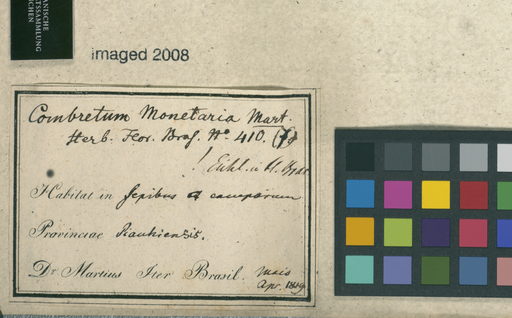 ANISCHE
TSSAMMLUNG
NCHEN
imaged 2008
Combretum Monetaria Mart.
Herb. Flor. Bras. No 410.
Habitat in sepibus camporum
Provinciae Piauhiensis.
Dr Martius Iter Brasil. Maio
Apr. 1819